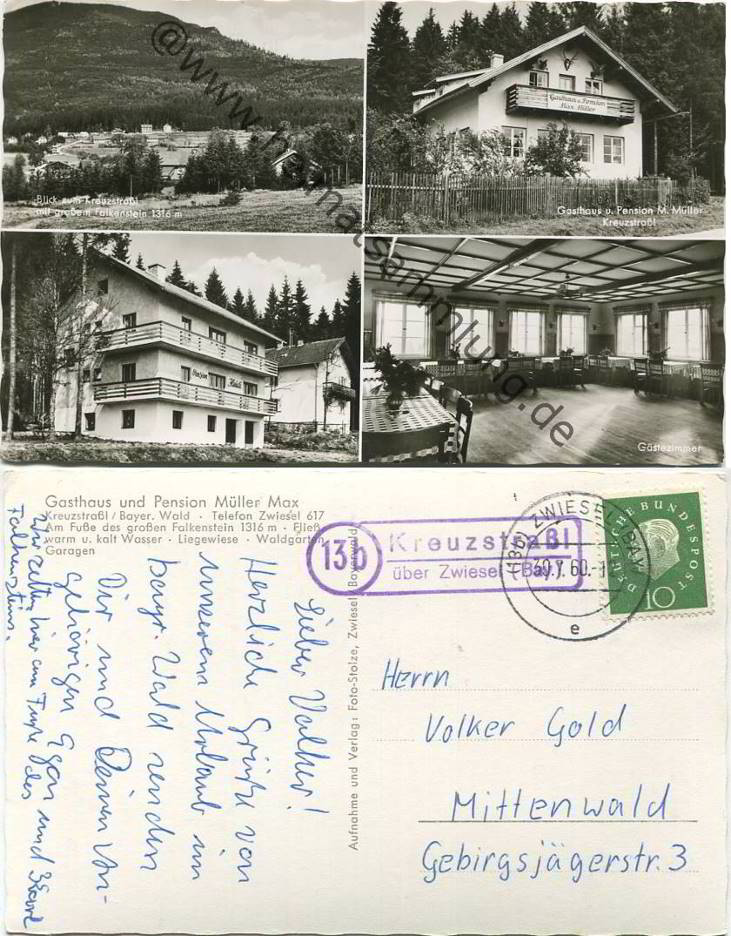 Blick zum Kreuzstraßl
mit großem Falkenstein 1316 m
Gasthaus u. Pension
Max Müller
Gasthaus u. Pension M. Müller
Kreuzstraßl
Pension
Gästezimmer
@www.heimatsammlung.de
Gasthaus und Pension Müller Max
Kreuzstraßl / Bayer. Wald · Telefon Zwiesel 617
Am Fuße des großen Falkenstein 1316 m · Fließ.
warm u. kalt Wasser · Liegewiese · Waldgarten
Garagen
Lieber Volker!
Herzliche Grüße von
unserem Urlaub im
bayr. Wald senden
Dir und Deinen An-
gehörigen Egon und
Wir zelten hier am Fuße des
Falkenstein.
Aufnahme und Verlag: Foto-Stolze, Zwiesel Bayerwald
13b
Kreuzstraßl
über Zwiesel (Bay.)
(13b) ZWIESEL (BAY)
60.
e
DEUTSCHE BUNDESPOST
10
Herrn
Volker Gold
Mittenwald
Gebirgsjägerstr. 3